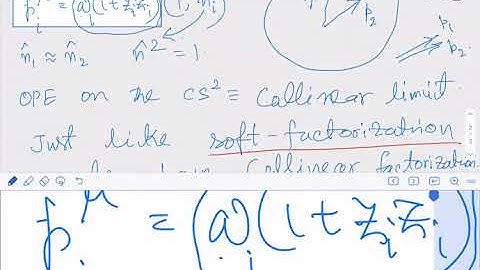 p_i^μ = (ω_i (1+z_i z̄_i) (1, n̂_i)
p_2
n̂_1 ≈ n̂_2 n̂^2 = 1
p_1
p_2
OPE on the CS^2 ≡ Collinear limit
Just like soft-factorization
Collinear factorization
p_i^μ = (ω_i (1+z_i z̄_i)